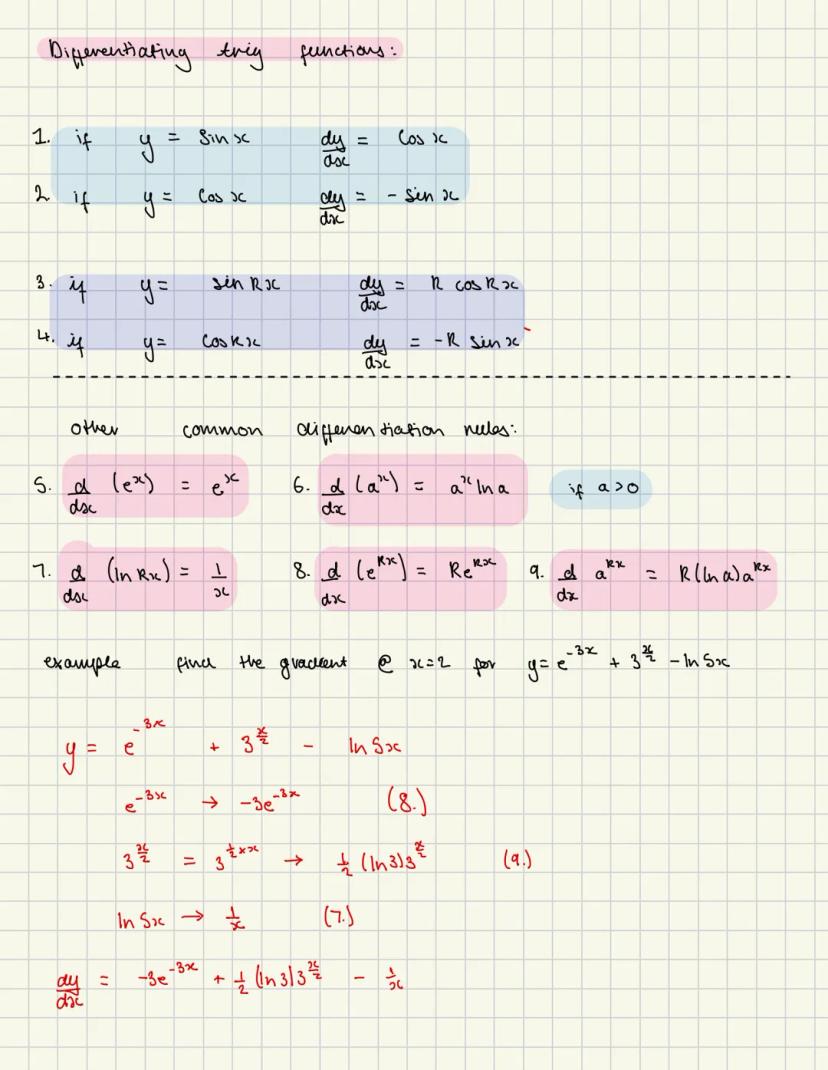 Differentiating trig functions:
1. if y = sin x dy/dx = cos x
2. if y = cos x dy/dx = - sin x
3. if y = sin kx dy/dx = k cos kx
4. if y = cos kx dy/dx = -k sin x
other common differentiation rules:
5. d/dx (e^x) = e^x 6. d/dx (a^x) = a^x ln a if a>0
7. d/dx (ln kx) = 1/x 8. d/dx (e^kx) = ke^kx 9. d/dx a^kx = k(ln a)a^kx
example find the gradient @ x=2 for y= e^-3x + 3^x/2 - ln 5x
y = e^-3x + 3^x/2 - ln 5x
e^-3x → -3e^-3x (8.)
3^x/2 = 3^1/2 × x → 1/2 (ln3)3^x/2 (9.)
ln 5x → 1/x (7.)
dy/dx = -3e^-3x + 1/2 (ln 3)3^x/2 - 1/x